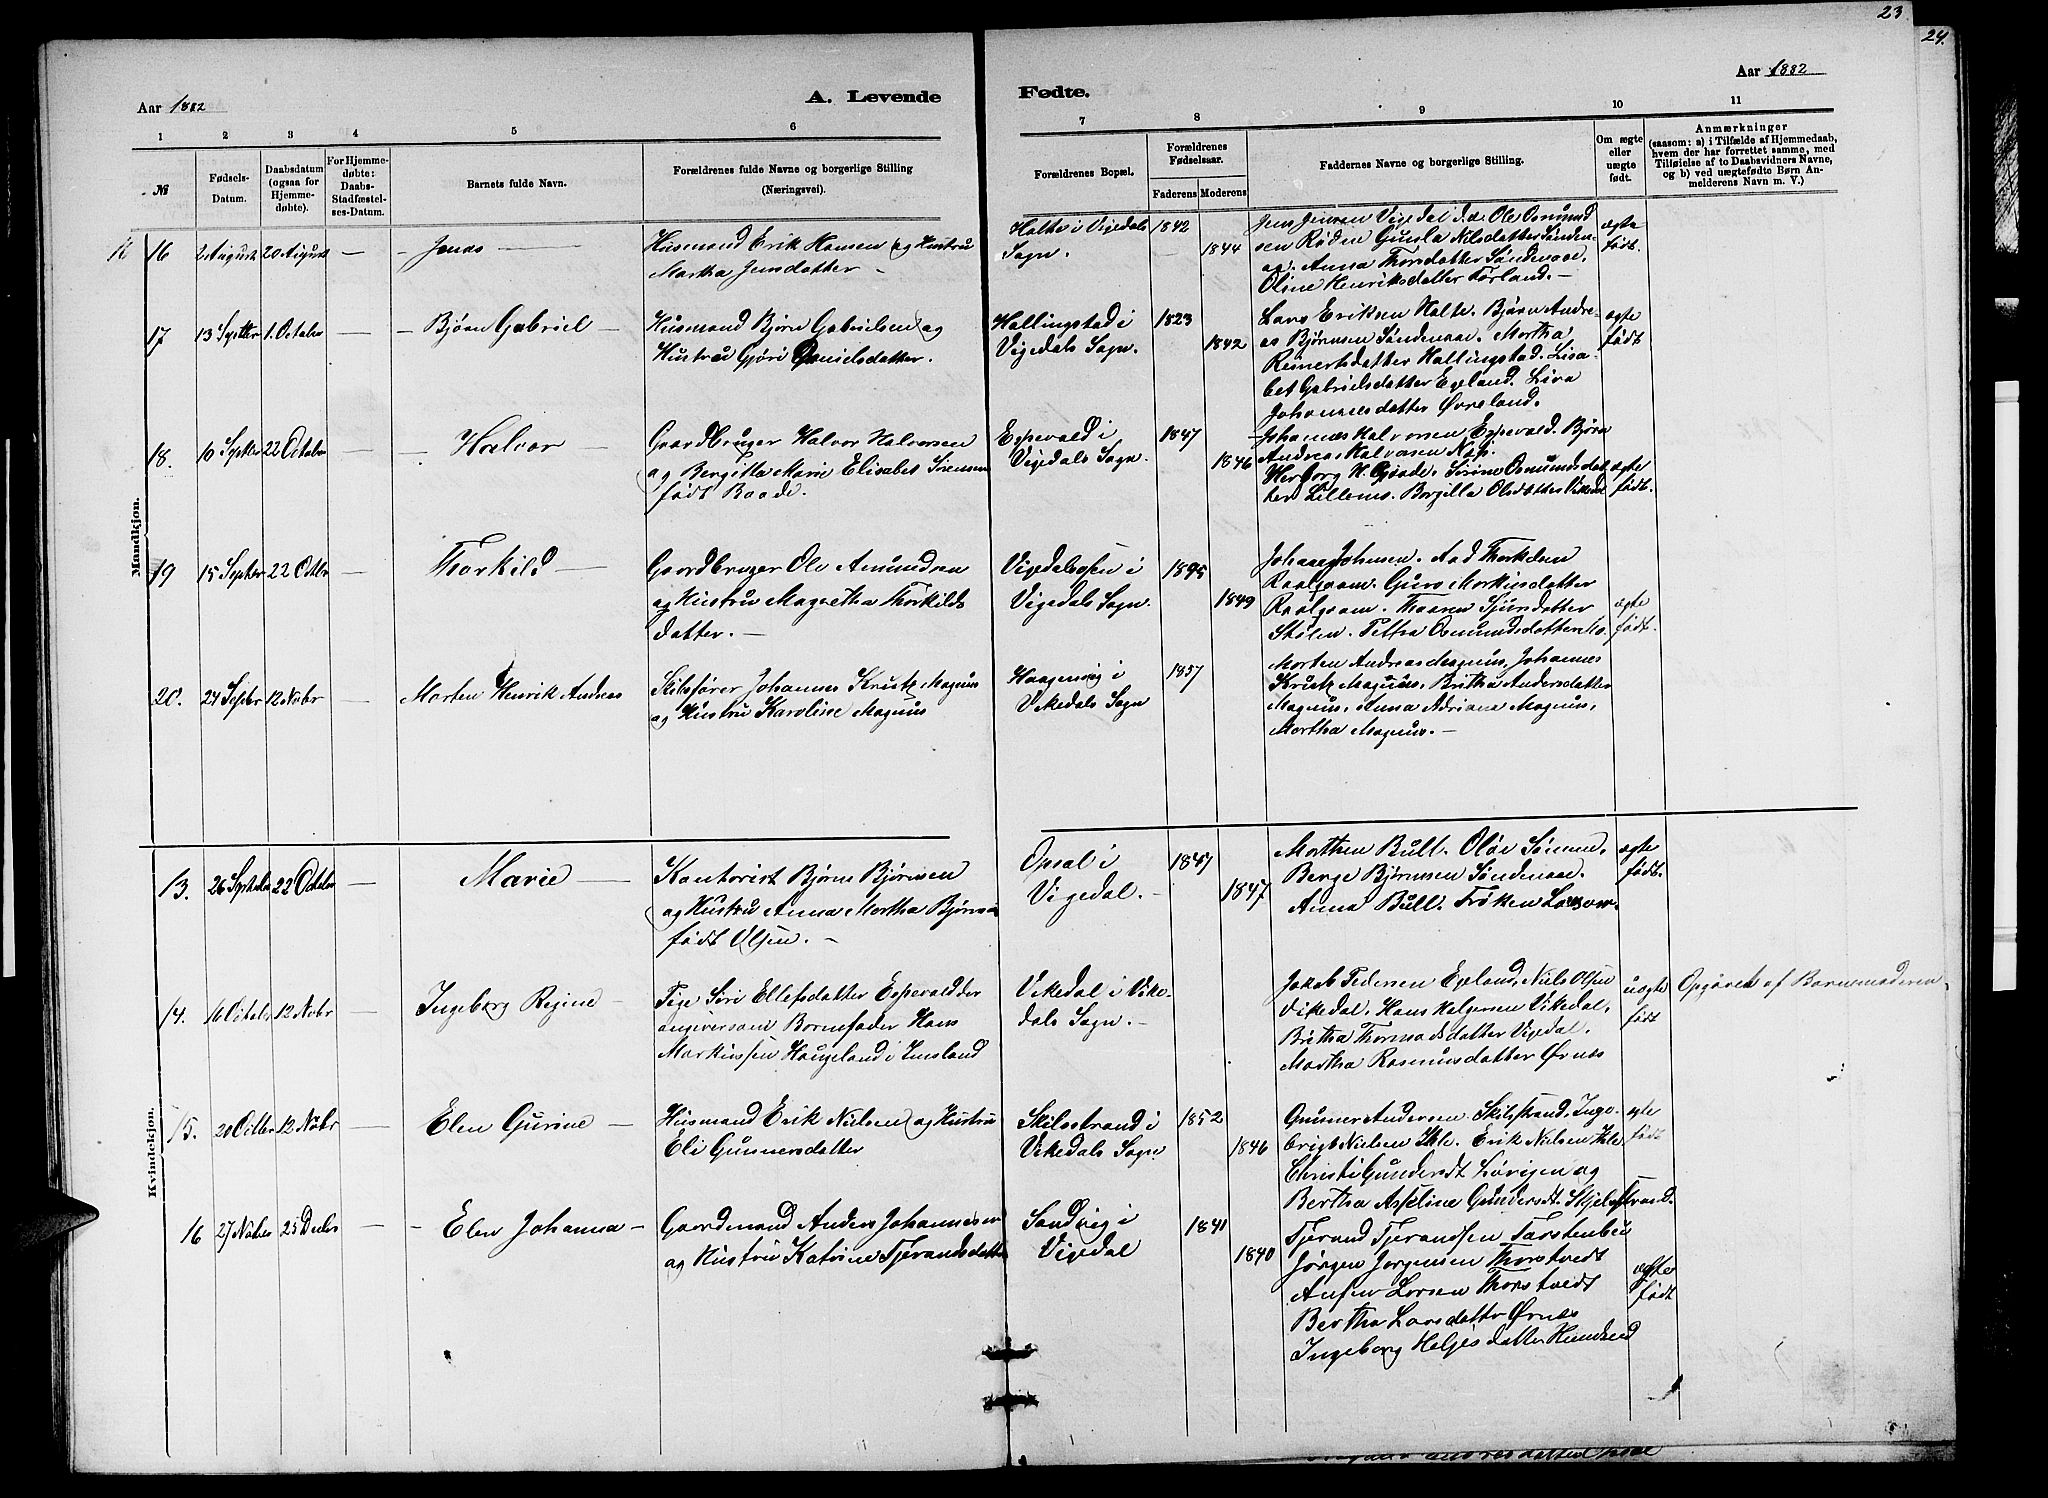 23
24.
Aar 1882
A. Levende
Fødte.
Aar 1882
1 2 3 4 5 6 7 8 9 10 11
№
Fødsels-
Datum.
Daabsdatum
(ogsaa for
Hjemme-
døbte).
For Hjemme-
døbte:
Daabs-
Stadfæstel-
ses-Datum.
Barnets fulde Navn.
Forældrenes fulde Navne og borgerlige Stilling
(Næringsvei).
Forældrenes Bopæl.
Forældrenes
Fødselsaar.
Faderens Moderens
Faddernes Navne og borgerlige Stilling.
Om ægte
eller
uægte
født.
Anmærkninger
(saasom: a) i Tilfælde af Hjemmedaab,
hvem der har forrettet samme, med
Tilføielse af to Daabsvidners Navne,
og b) ved uægtefødte Børn An-
melderens Navn m. V.)
Mandkjøn.
16 2 August 20 August — Jonas —
Husmand Erik Hansen og Hustru
Martha Jensdatter —
Halte i Vigedals
Sogn.
1842 1844
Jens Jensen Vigedal Ole Osmund
sen Røden Gunla Nilsdatter Sønden-
aa. Anna Thorsdatter Søndenaae.
Olene Henriksdatter Førland. —
ægte
født.
17 13 Septbr 1 Octobr — Bjørn Gabriel —
Husmand Bjørn Gabrielsen og
Hustru Gjøri Danielsdatter.
Hallingstad i
Vigedals Sogn.
1823 1842
Lars Eriksen Halte. Bjørn Andre-
as Bjørnsen Søndenaae. Martha
Reinertsdatter Hallingstad. Lisa-
bet Gabrielsdatter Egeland. Liva
Johannesdatter Øvreland.
ægte
født
18. 10 Septbr 22 Octobr — Halvor —
Gaardbruger Halvor Halvorsen
og Bergitta Marie Elisabet Sørensen
født Baade.
Espevold i
Vigedals Sogn.
1847 1846
Johannes Halvorsen Espevold. Bjørn
Andreas Halvorsen
Herborg H. Sirine Osmundsdat
ter Lillenes. Borgilla Olsdatter Vikedal
ægte
født.
19 15 Septbr 22 Octbr — Thorkild —
Gaardbruger Ole Amundsen
og Hustru Magretha Thorkilds
datter. —
Vigedalsosen i
Vigedals Sogn.
1845 1849
Johan Johnsen. Aad Thorkilsen
Raalgaam. Guro Markusdatter
Raalgaam. Maren Sjursdatter
Stølen. Petra Osmundsdatter Mo.
ægte
født.
20. 24 Septbr 12 Nobr — Morten Henrik Andreas
Skibsfører Johannes Krutz Magnus
og Hustru Karoline Magnus
Haagenvig i
Vikedals Sogn
1857
Morten Andreas Magnus, Johannes
Krutz Magnus, Britha Andersdatter
Magnus, Anna Adriana Magnus,
Martha Magnus. —
Kvindekjøn.
13. 26 Septbr 22 Octobr — Marie —
Kontorist Bjørn Bjørnsen
og Hustru Anna Martha Bjørnsen
født Olsen. —
Opsal i
Vigedal. —
1847 1847
Morthen Bull. Olav Sømme.
Berge Bjørnsen Søndenaae.
Anna Bull. Frøken Larsen.
ægte
født.
14. 16 Octobr 12 Nobr — Ingeborg Regine —
Pige Siri Ellefsdatter Espevold der
angiver som Barnefader Hans
Markussen Haugeland i Imsland
Vikedal i Vike-
dals Sogn. —
Jakob Pedersen Egeland, Niels Olsen
Vikedal. Hans Helgesen Vikedal,
Britha Thomasdatter Vigedal.
Martha Rasmusdatter Ørnes
uægte
født
Opgivet af Barnemoderen.
15. 20 Octbr 12 Nobr — Elen Gurine —
Husmand Erik Nielsen og Hustru
Eli Gunnersdatter
Skilsstrand i
Vikedals Sogn
1852 1846
Gunner Andersen Skilsstrand. Inge-
brigt Nielsen Ihle. Erik Nielsen Ihle
Christi Gundersdt Løvigen og
Bertha Asseline Gundersdt. Skjelsstrand.
ægte
født
16 27 Nobr 25 Decbr — Elen Johanna —
Gaardmand Anders Johannesen
og Hustru Katrine Tjerandsdatter
Sandvig i
Vigedal
1841 1840
Tjerand Tjerandsen Torstenbu
Jørgen Jørgensen Thorstvedt
Ansten Larsen Thorstvedt
Bertha Larsdatter Ørnes
Ingeborg Helgesdatter Hundseid
ægte
født